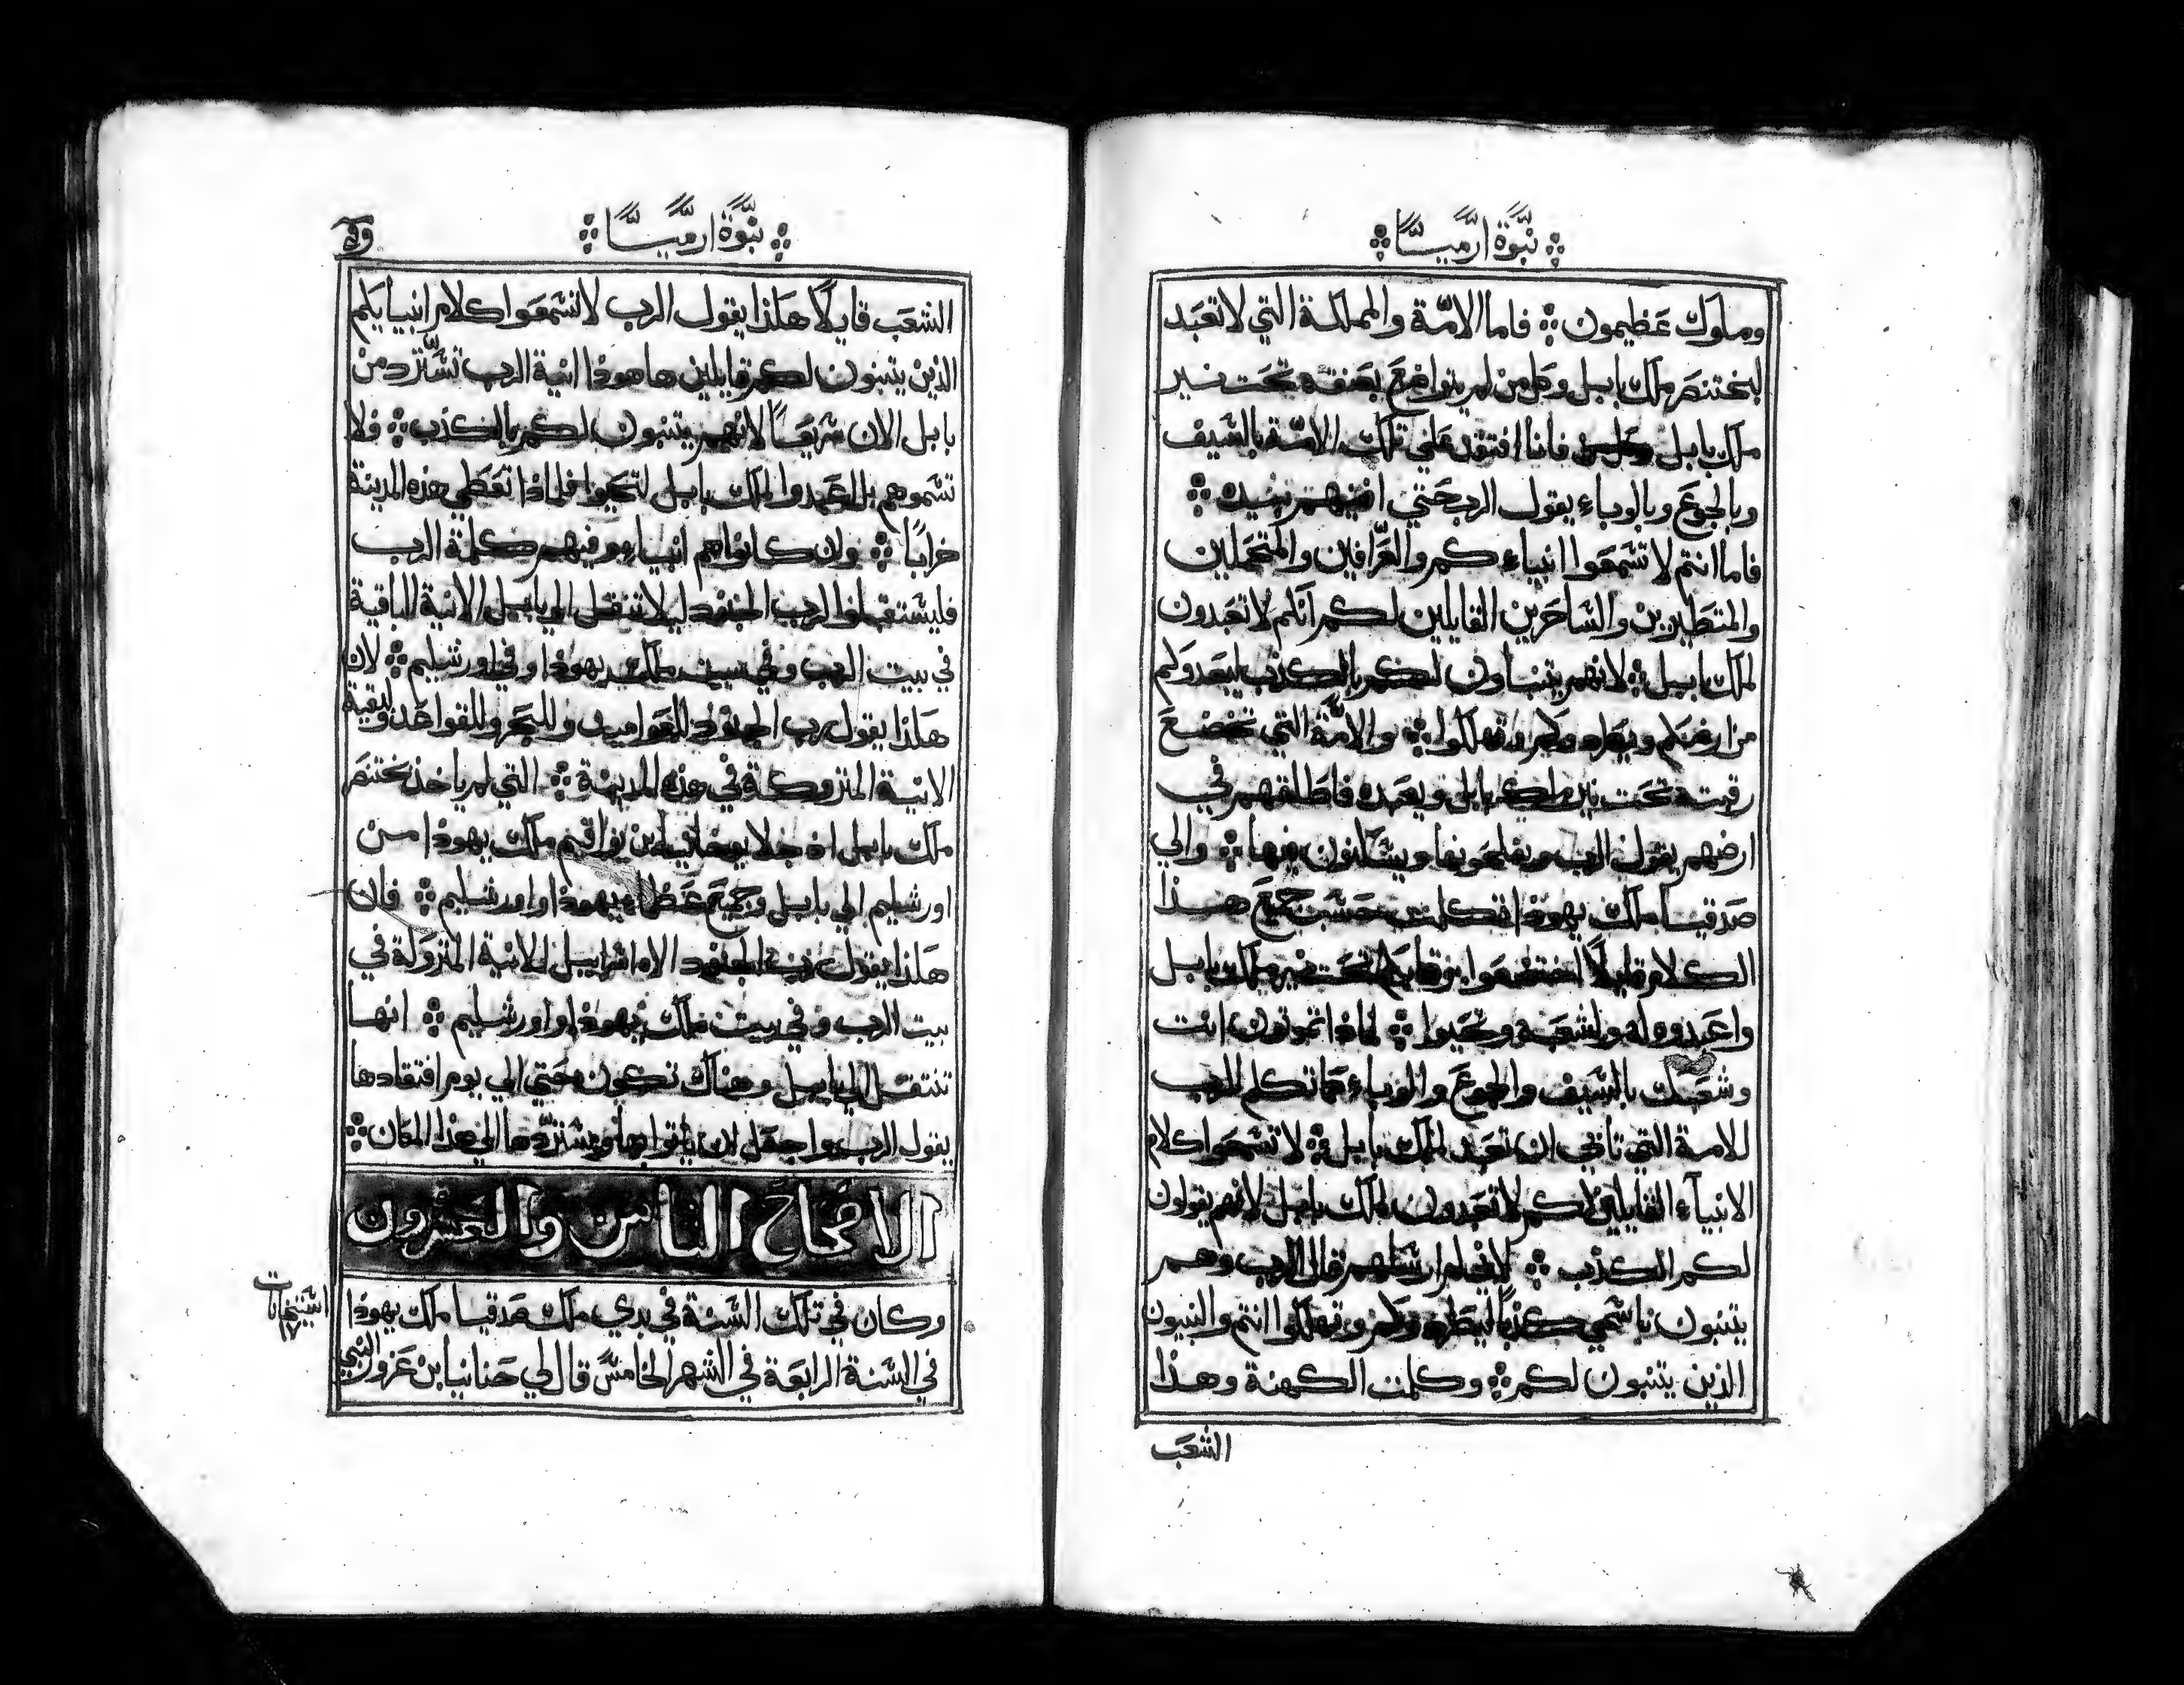 نبوة ارميا
وملوك عظيمون فاما الامة والمملكة التي لا تعبد
لبختنصر ملك بابل وكلمن لم يتواضع بعنقه تحت نير
ملك بابل فانا افتقد علي تلك الامة بالسيف
وبالجوع وبالوباء يقول الرب حتي افنيهم بيده
فاما انتم لا تسمعوا انبياءكم والعرافين والمتحملين
والمتطيرين والساحرين القايلين لكم انكم لا تعبدون
لملك بابل لانهم يتنباون لكم بالكذب ليبعدوكم
من ارضكم ويطردوكم وتهلكوا والامة التي تخضع
رقبته تحت نير ملك بابل ويعبده فاطلقهم في
ارضهم يقول الرب ويفلحونها ويسكنون فيها والي
صدقيا ملك يهوذا تكلمت حسب جميع هذا
الكلام قايلاً اخضعوا رقابكم تحت نير ملك بابل
واعبدوه له ولشعبه وتحيوا لماذا تموتون انت
وشعبك بالسيف والجوع والوباء كما تكلم الرب
للامة التي تابي ان تعبد لملك بابل لا تسمعوا كلام
الانبياء القايلين لكم لا تعبدون لملك بابل لانهم يقولون
لكم الكذب لاني لم ارسلهم قال الرب وهم
يتنبون باسمي كذباً ليطردوكم وتهلكوا انتم والنبيون
الذين يتنبون لكم وكلمت الكهنة وهذا
الشعب
نبوة ارميا
الشعب قايلاً هكذا يقول الرب لا تسمعوا كلام انبيايكم
الذين يتنبون لكم قايلين ها هوذا انية الرب تسترد من
بابل الان سريعاً لانهم يتنبون لكم بالكذب فلا
تسموهم بل اعبدوا لملك بابل لتحيوا فلماذا تعطي هذه المدينة
خراباً وان كانوا هم انبياء وفيهم كلمة الرب
فليستقبلوا الرب الجنود ليلا تنقل الي بابل الانية الباقية
في بيت الرب وفي بيت ملك يهوذا وفي اورشليم لان
هكذا يقول رب الجنود للعواميد وللبحر وللقواعد ولبقية
الانية المتروكة في هذه المدينة التي لم ياخذ بختنصر
ملك بابل اذ جلا يوخانيا بن يواقيم ملك يهوذا من
اورشليم الي بابل وجميع عظماء يهوذا واورشليم فان
هكذا يقول رب الجنود الاه اسراييل للانية المتروكة في
بيت الرب وفي بيت ملك يهوذا واورشليم انها
تنتقل الي بابل وهناك تكون حتي الي يوم افتقادها
يقول الرب واجعل ان ياتوا بها ويستردها الي هذا المكان
الاصحاح الثامن والعشرون
وكان في تلك السنة في بدي ملك صدقيا ملك يهوذا
في السنة الرابعة في الشهر الخامس قال لي حنانيا بن عزور النبي